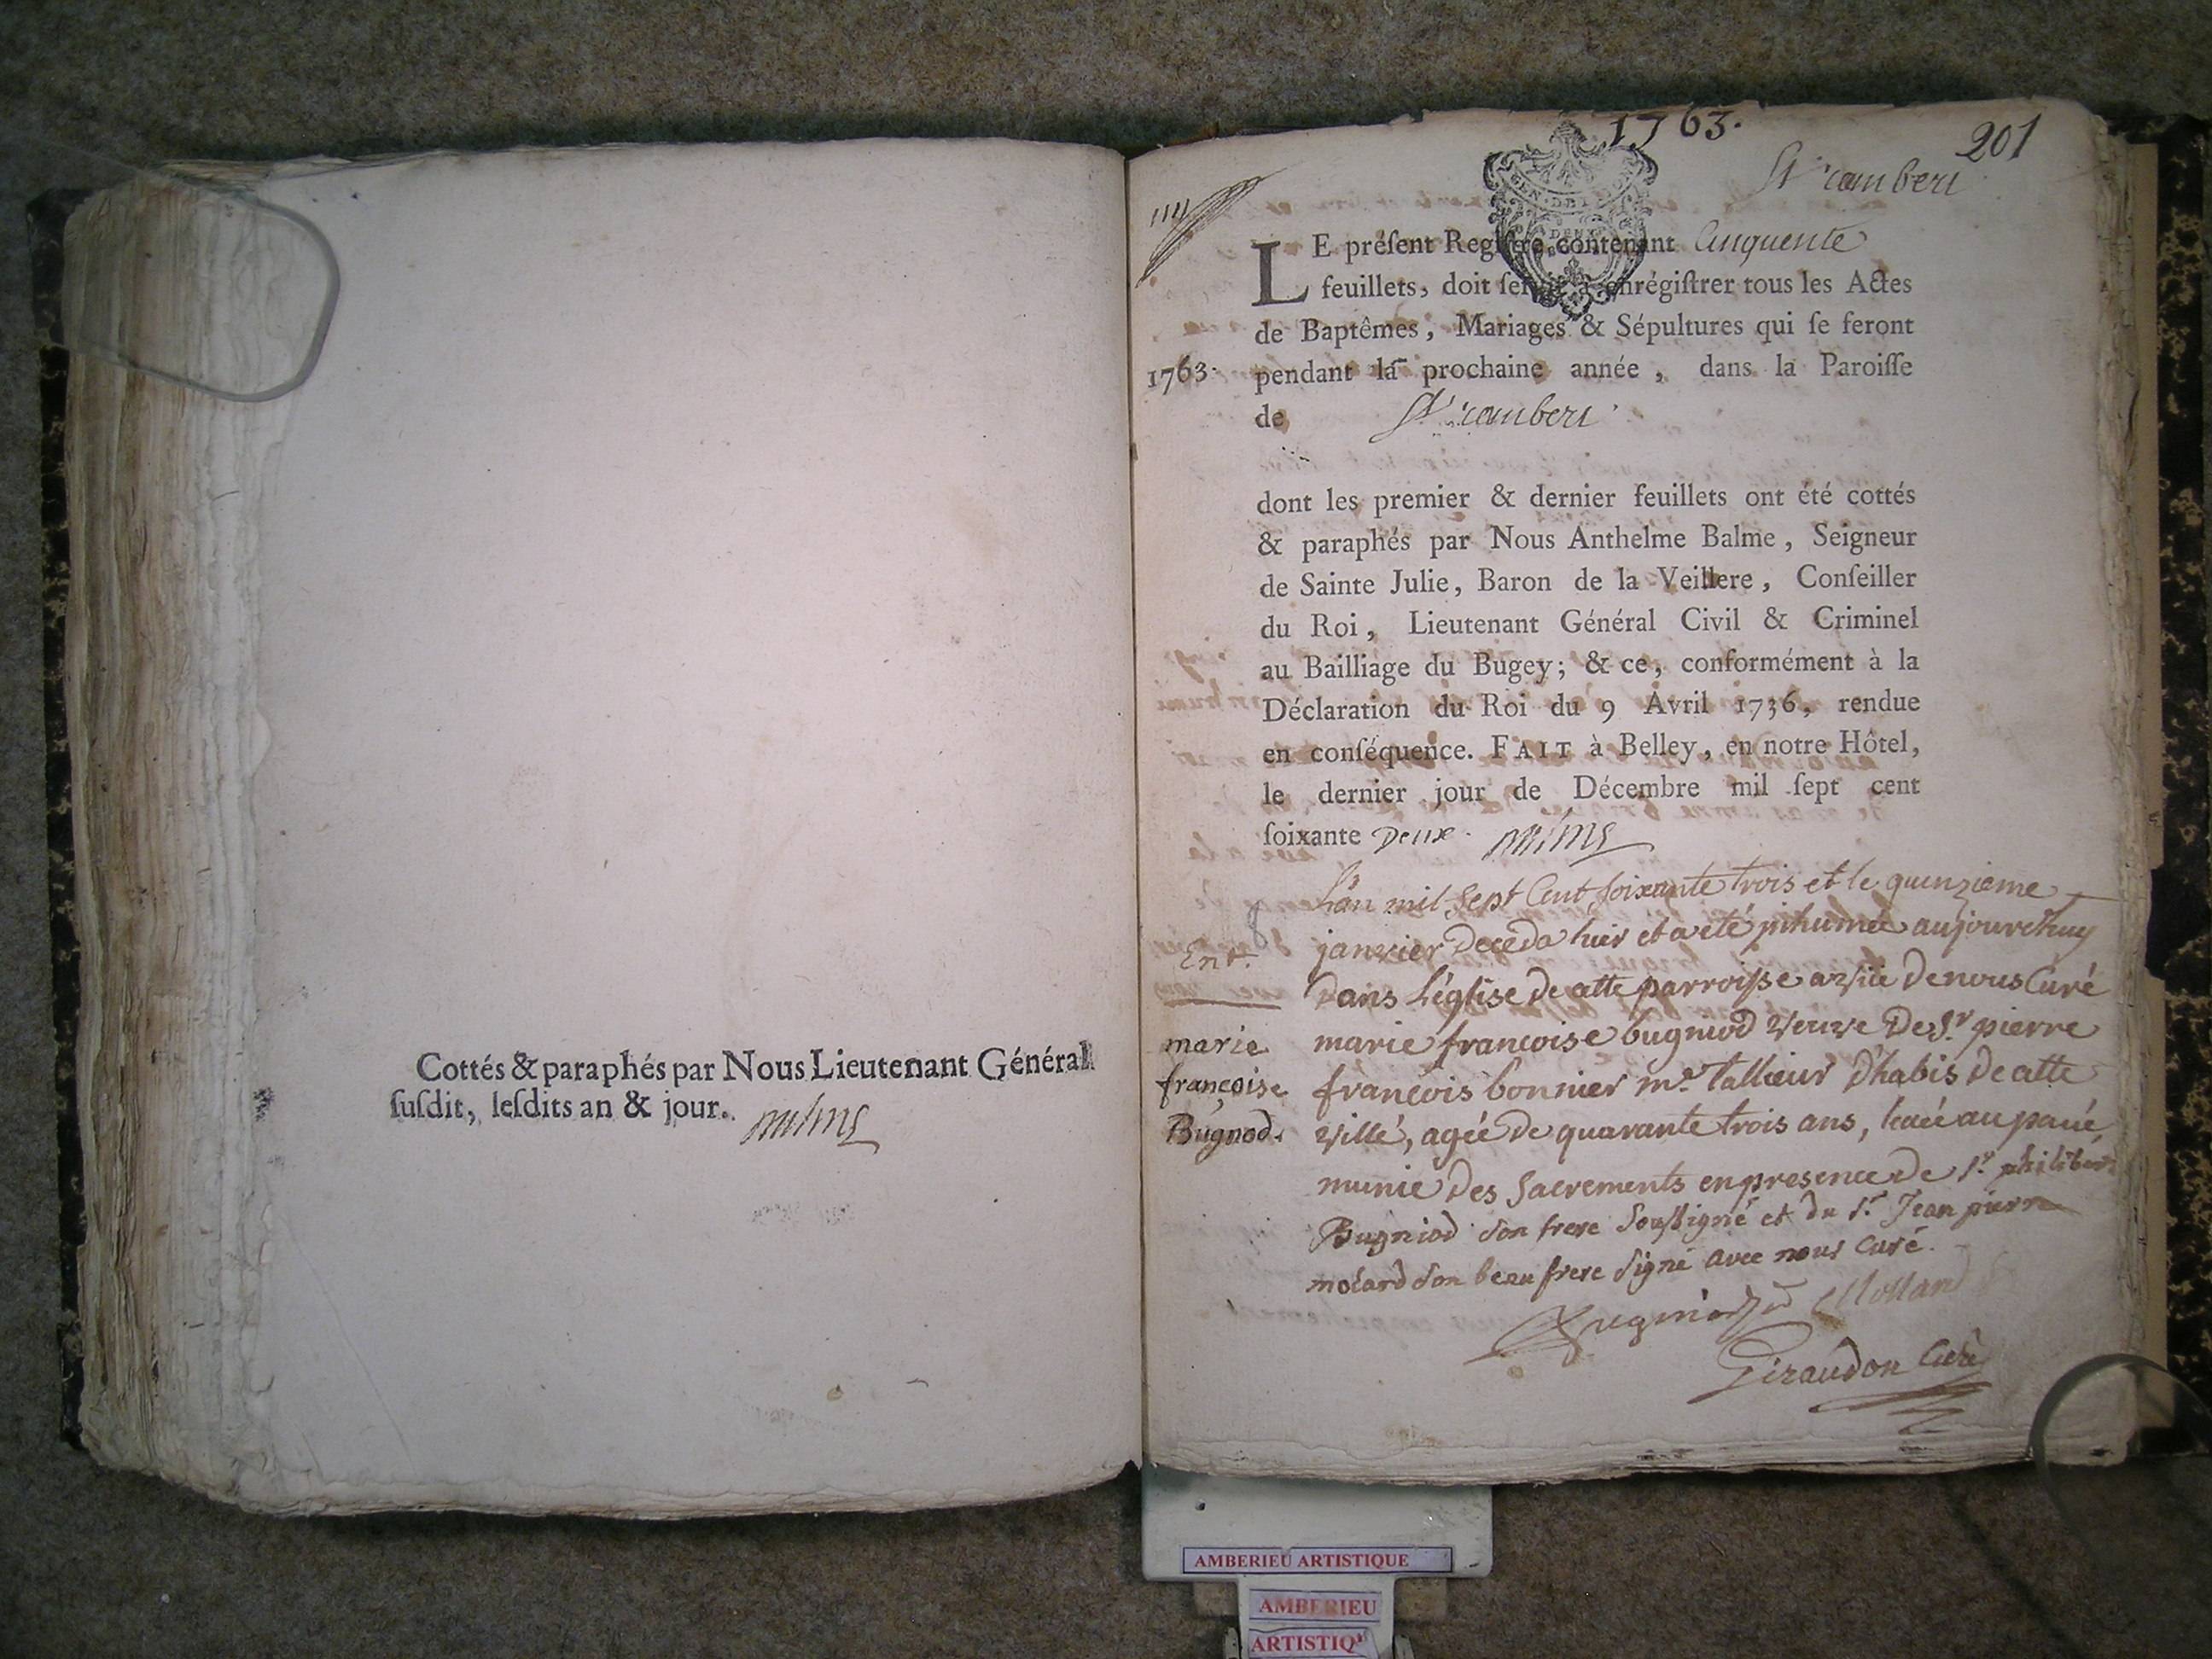 Cottés & paraphés par Nous Lieutenant Général
ſuſdit, leſdits an & jour.
1763.
201
St rambert
LE préſent Regiſtre contenant Cinquente
feuillets, doit ſervir à enrégiſtrer tous les Actes
de Baptêmes, Mariages & Sépultures qui ſe feront
1763. pendant la prochaine année, dans la Paroiſſe
de St rambert
dont les premier & dernier feuillets ont été cottés
& paraphés par Nous Anthelme Balme, Seigneur
de Sainte Julie, Baron de la Veillere, Conſeiller
du Roi, Lieutenant Général Civil & Criminel
au Bailliage du Bugey; & ce, conformément à la
Déclaration du Roi du 9 Avril 1736, rendue
en conſéquence. FAIT à Belley, en notre Hôtel,
le dernier jour de Décembre mil ſept cent
ſoixante Deux.
Ent.
marie
françoise
Bugnod.
L'an mil sept Cent soixante trois et le quinzieme
janvier deceda hier et a eté inhumée aujourdhuy
dans l'église de cette parroisse de nous Curé
marie francoise bugniod veuve de Sr. pierre
françois bonnier me. tallieur d'habis de cette
ville, agée de quarante trois ans,
munie des Sacrements en presence de Sr. philibert
Bugniod son frere soussigné et du Sr. Jean pierre
molard son beau frere signé avec nous curé.
Bugniod Mollard
Giraudon Curé
AMBERIEU ARTISTIQUE
AMBERIEU
ARTISTIQ